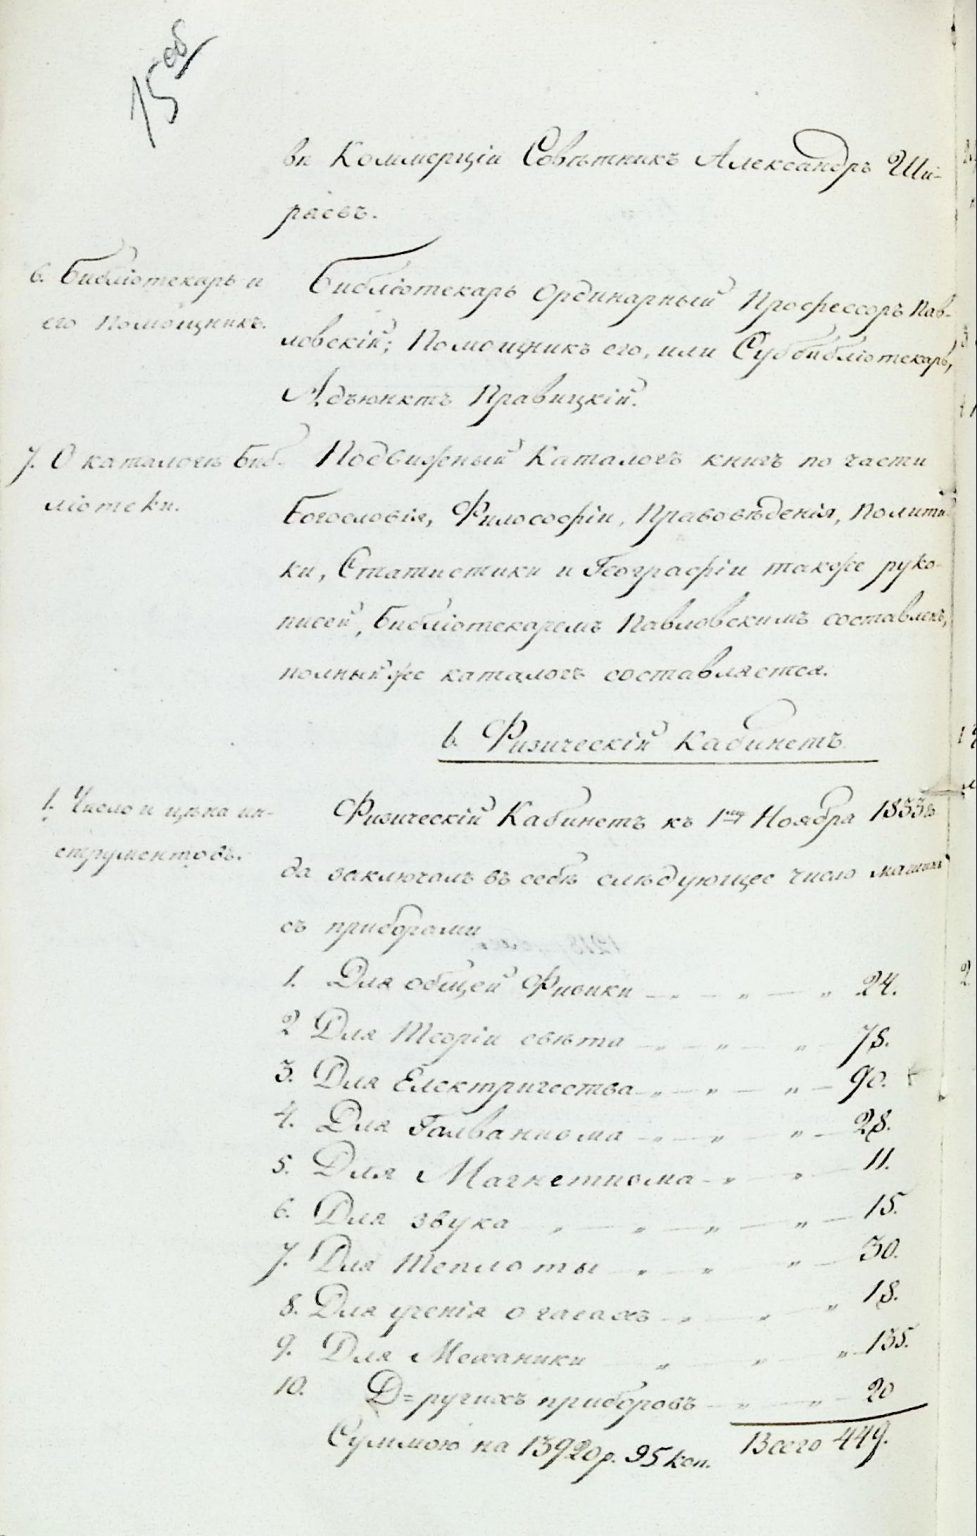 15об
ви Коммерціи Совѣтникъ Александръ Ши-
раевъ.
6. Библіотекарь и
его Помощникъ.
Библіотекарь Ординарный Профессоръ Пав-
ловскій; Помощникъ его, или Суббибліотекарь,
Адъюнктъ Правицкій.
7. О каталогѣ Биб-
ліотеки.
Подвижный Каталогъ книгъ по части
Богословія, Философіи, Правовѣденія, Полити-
ки, Статистики и Географіи также руко-
писей, Библіотекаремъ Павловскимъ составленъ,
полный же каталогъ составляется.
b. Физическій Кабинетъ.
1. Число и цѣна ин-
струментовъ.
Физическій Кабинетъ къ 1му Ноября 1833 го
да заключалъ въ себѣ слѣдующее число машинъ
съ приборами
1. Для общей Физики — „ — „ — „ 24.
2 Для Теоріи свѣта — „ — „ — „ — 78.
3. Для Електричества — „ — „ — „ — 90.
4. Для Галванизма — „ — „ — „ — 28.
5. Для Магнетизма — „ — „ — 11.
6. Для звука „ — „ — „ — „ — 15.
7. Для Теплоты „ — „ — „ — 30.
8. Для ученія о газахъ — „ — „ — „ 18.
9. Для Механики „ — „ — „ — 135.
10. Д=ругихъ приборовъ — „ — „ — 20
Суммою на 13920 р. 95 коп. Всего 449.